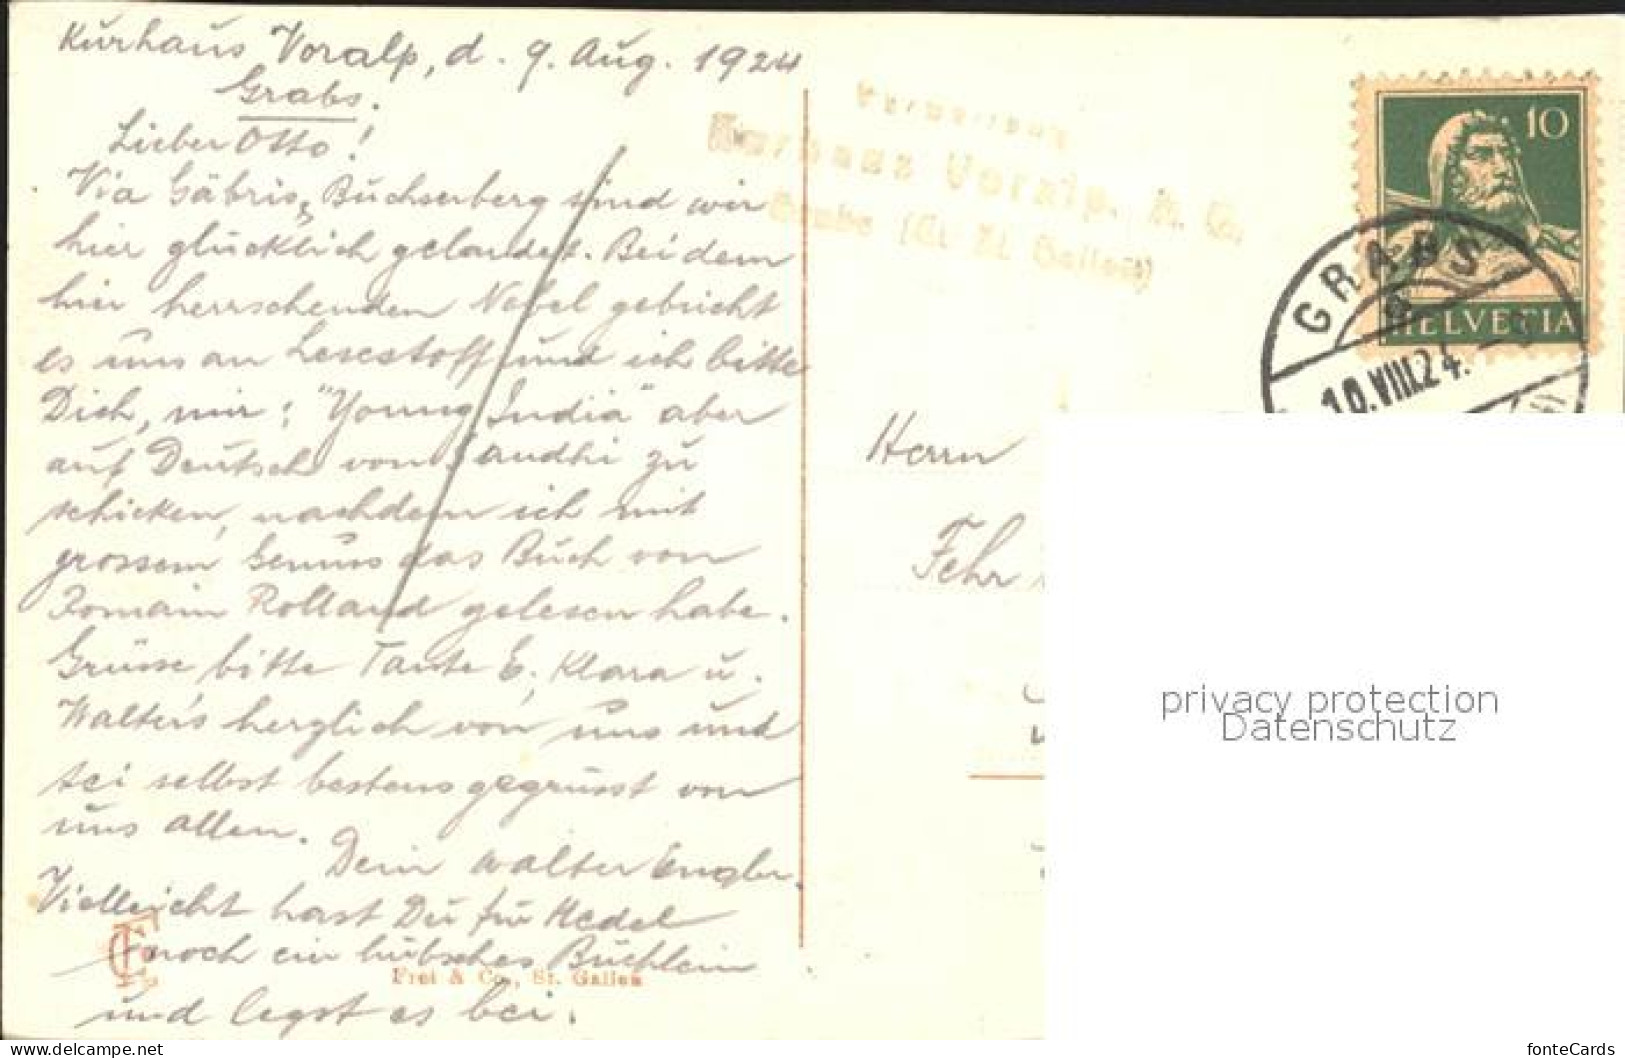 Kurhaus Voralp, d. 9. Aug. 1924
Grabs.
Lieber Otto!
Via Gäbris, Buchserberg sind wir
hier glücklich gelandet. Bei dem
hier herrschenden Nebel gebricht
es uns an Lesestoff und ich bitte
Dich, mir: "Young India" aber
auf Deutsch von Gandhi zu
schicken, nachdem ich mit
grossem Genuss das Buch von
Romain Rolland gelesen habe.
Grüsse bitte Tante E, Klara u.
Walter's herzlich von uns und
sei selbst bestens gegrüsst von
uns allen.
Dein Walter Engler.
Vielleicht hast Du für Hedel
noch ein hübsches Büchlein
und legst es bei.
Frei & Co., St. Gallen
Kurhaus Voralp. A. G.
Grabs (Kt. St. Gallen)
10
HELVETIA
GRABS
10.VIII.24.
Herrn
Fehr
privacy protection
Datenschutz
All rights reserved www.ansichtskarten-center.de
fonteCards